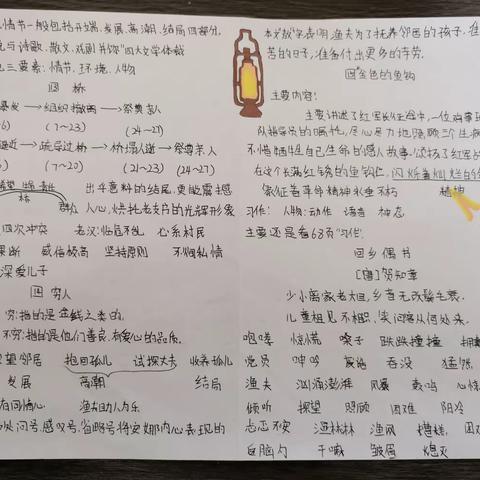 情节一般包括开端、发展、高潮、结局四部分,
与诗歌、散文、戏剧并称"四大文学体裁
三要素:情节、环境、人物
四 桥
→组织撤离→祭奠亲人
6) (7~23) (24~27)
→疏导过桥→桥塌人逝→祭尊亲人
(7~20) (21~23) (24~27)
出乎意料的结尾,更能震撼
桥
群众
人心,烘托老支书的光辉形象
四次冲突 老汉:临危不乱 心系村民
果断 威信极高 坚持原则 不徇私情
深爱儿子
四 穷人
穷:指的是金钱之类的。
不穷:指的是他们善良、有爱心的品质。
望邻居 抱回孤儿 试探丈夫 收养孤儿
发展 高潮 结局
有同情心 渔夫助人为乐
问号、感叹号、省略号将安娜内心表现的
本"熬"字表明,渔夫为了抚养邻居的孩子,准
苦的日子,准备付出更多的辛劳。
四 金色的鱼钩
主要内容:
主要讲述了红军长征途中,一位炊事班
队指导员的嘱托,尽心尽力地照顾三个生病
不惜牺牲自己生命的感人故事,颂扬了红军战
在这个长满红锈的鱼钩上,闪烁着灿烂的
象征着革命精神永垂不朽 精神
习作: 人物:动作 语言 神态
主要还是看68页"习作。
回乡偶书
[唐]贺知章
少小离家老大回,乡音无改鬓毛衰。
儿童相见不相识,笑问客从何处来。
咆哮 惊慌 嗓子 跌跌撞撞 拥戴
党员 呻吟 吞没 猛然
渔夫 汹涌澎湃 风暴
倾听 探望 照顾 困难 阴冷
忐忑不安 湿淋淋 渔网 糟糕
后脑勺 干咳 皱眉 熄灭